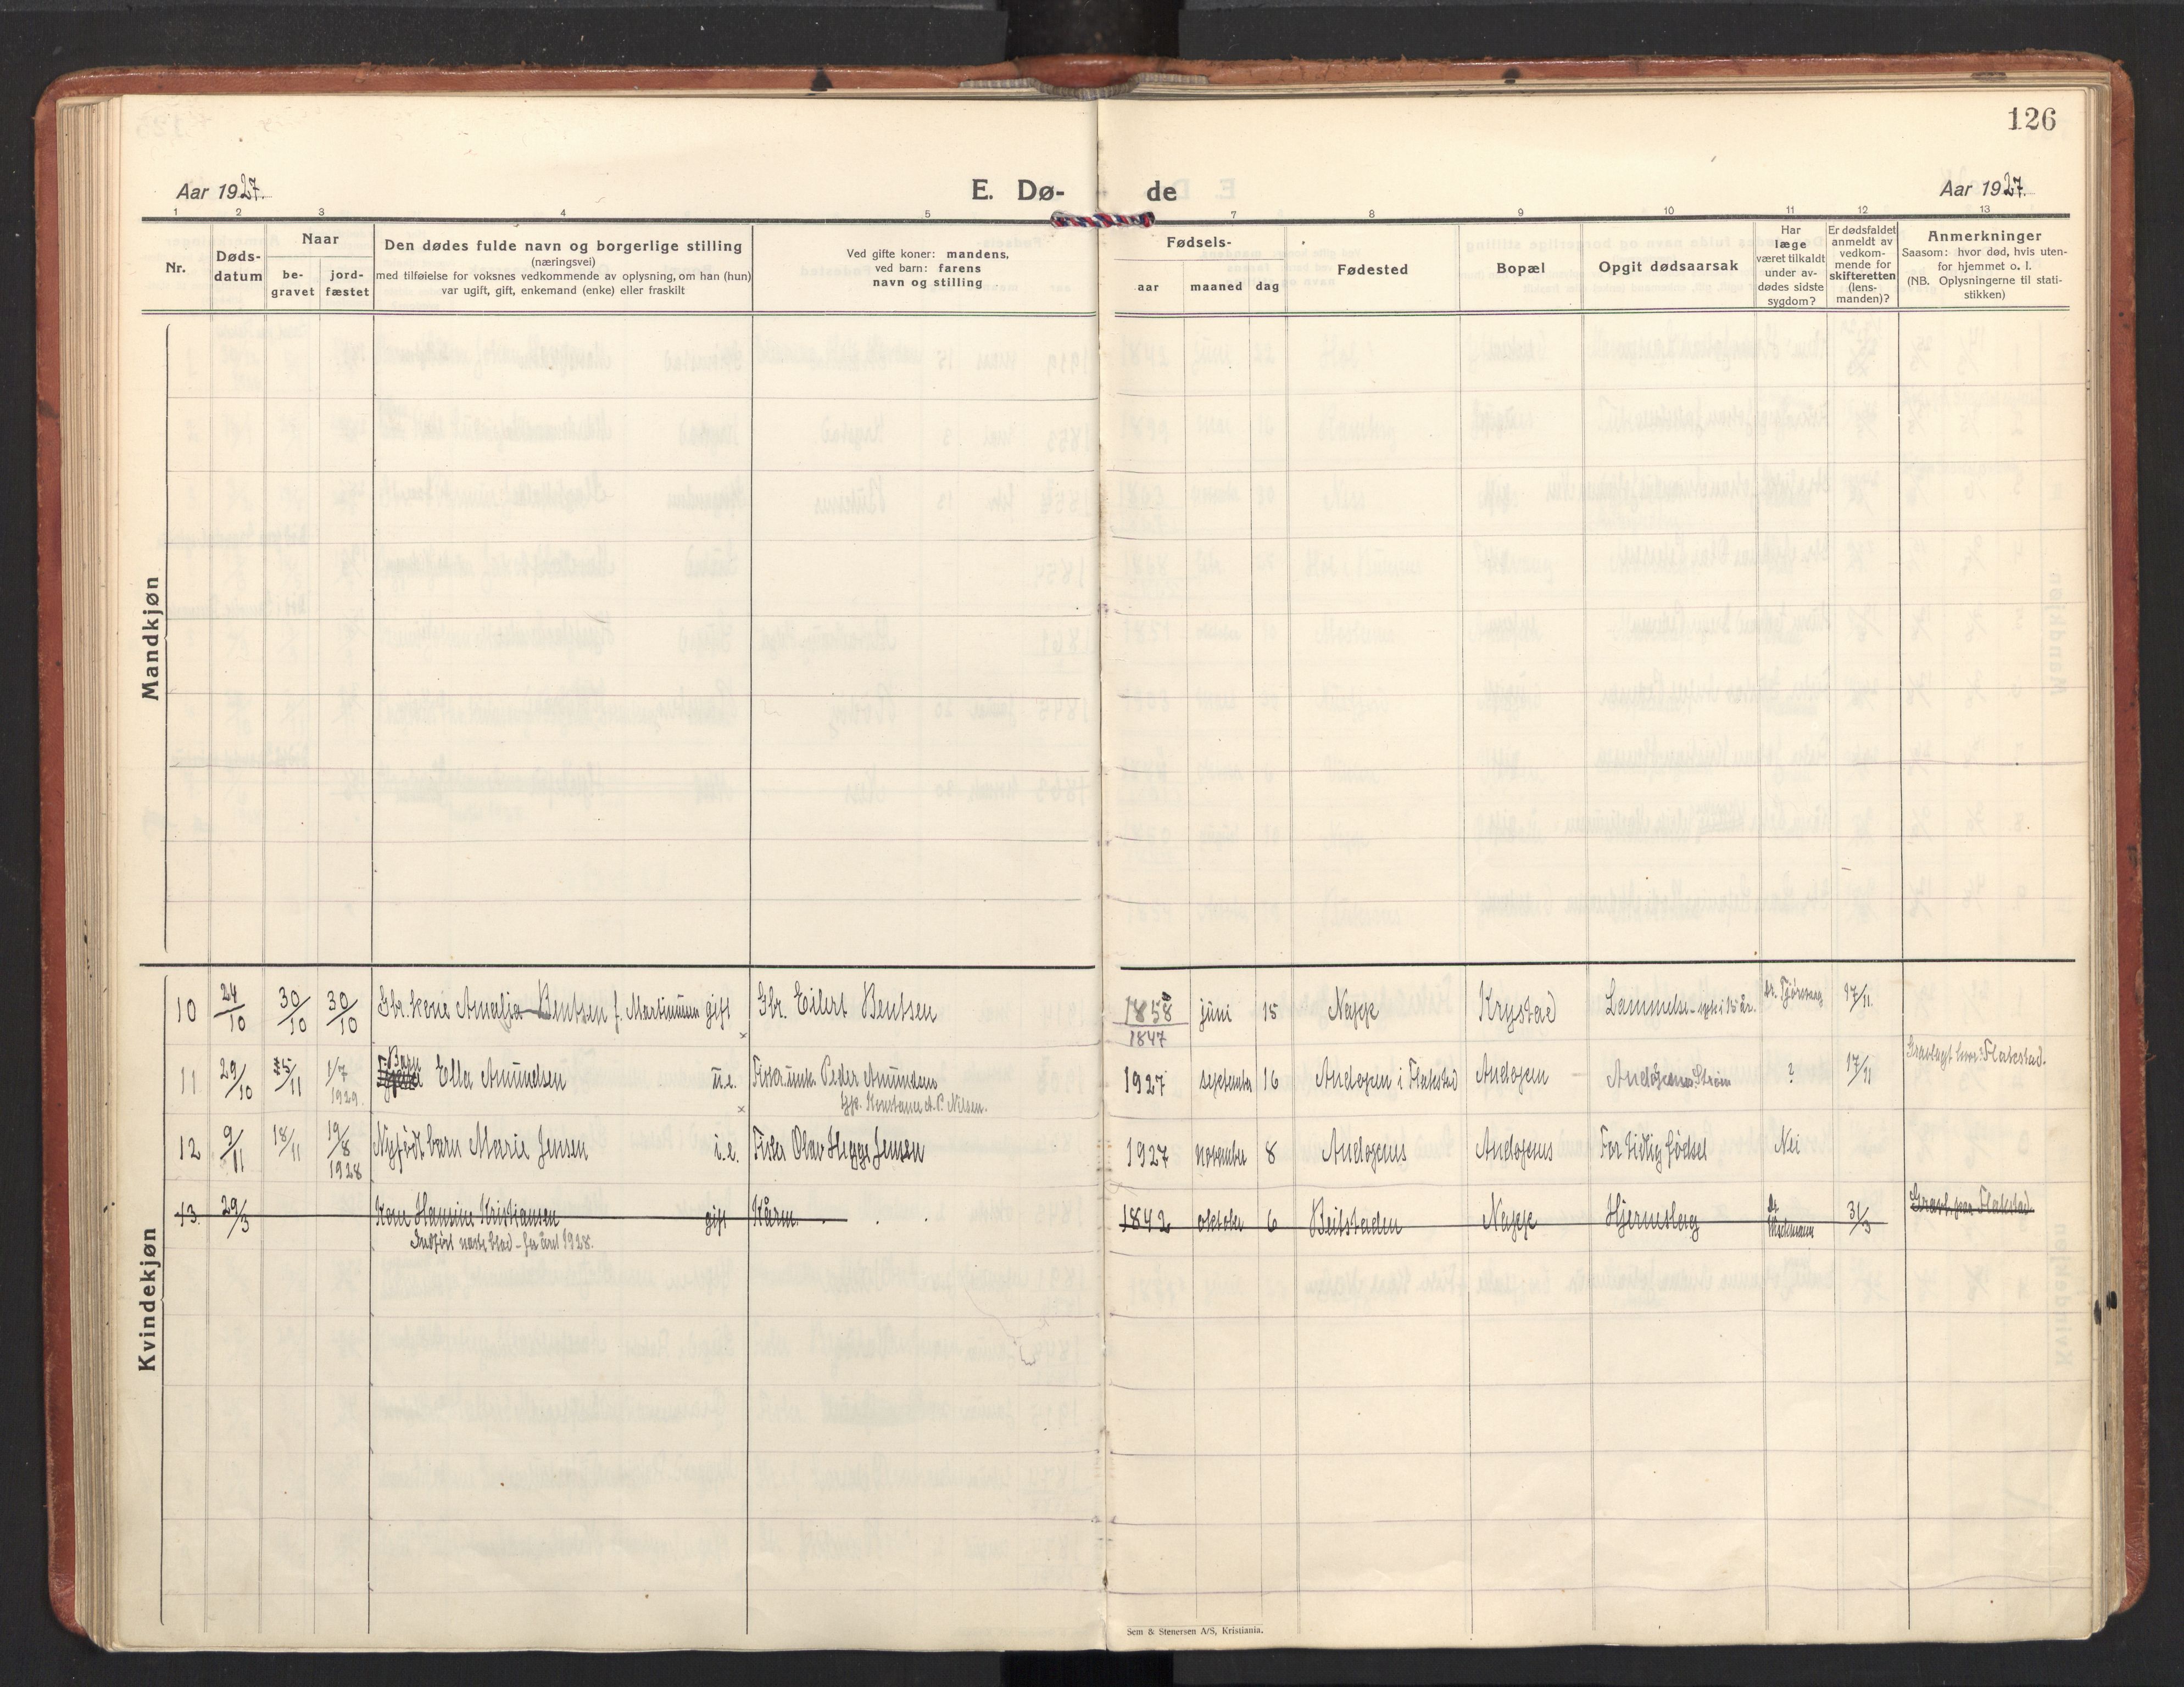 126
Aar 1927.
E. Dø-
de
Aar 1927.
1 2 3 4 5 7 8 9 10 11 12 13
Nr.
Døds-
datum
Naar
be-
gravet
jord-
fæstet
Den dødes fulde navn og borgerlige stilling
(næringsvei)
med tilføielse for voksnes vedkommende av oplysning, om han (hun)
var ugift, gift, enkemand (enke) eller fraskilt
Ved gifte koner: mandens,
ved barn: farens
navn og stilling
Fødsels-
aar
maaned
dag
Fødested
Bopæl
Opgit dødsaarsak
Har
læge
været tilkaldt
under av-
dødes sidste
sygdom?
Er dødsfaldet
anmeldt av
vedkom-
mende for
skifteretten
(lens-
manden)?
Anmerkninger
Saasom: hvor død, hvis uten-
for hjemmet o. l.
(NB. Oplysningerne til stati-
stikken)
Mandkjøn
Kvindekjøn
10 24/10 30/10 30/10 Gbr. kone Amalia Bentsen f. Martinussen gift Gbr. Eilert Bentsen 1858 juni 15 Napp Krystad Lammelse 17/11.
1847
11 29/10 /11 1/7 1929. Barn Ella Amundsen u.e. Fisker, umk. Peder Amundsen 1927 september 16 Andopen i Flakstad Andopen – Andopen Strøm ? 17/11 Gravlagt hver: Flakstad.
Konstance A. P. Nilsen.
12 9/11 18/11 19/8 1928 Nyfødt barn Marie Jensen i.e. Fisker Olav Hegge Jensen 1927 november 8 Andopens Andopens For tidlig fødsel Nei
13. 29/3 Kone Hansine Kristiansen gift Kårm. 1842 oktober 6 Beitstaden Napp Hjerneslag Dr. 31/3 Gravl. paa Flakstad.
Indført næste blad – for året 1928.
Sem & Stenersen A/S, Kristiania.